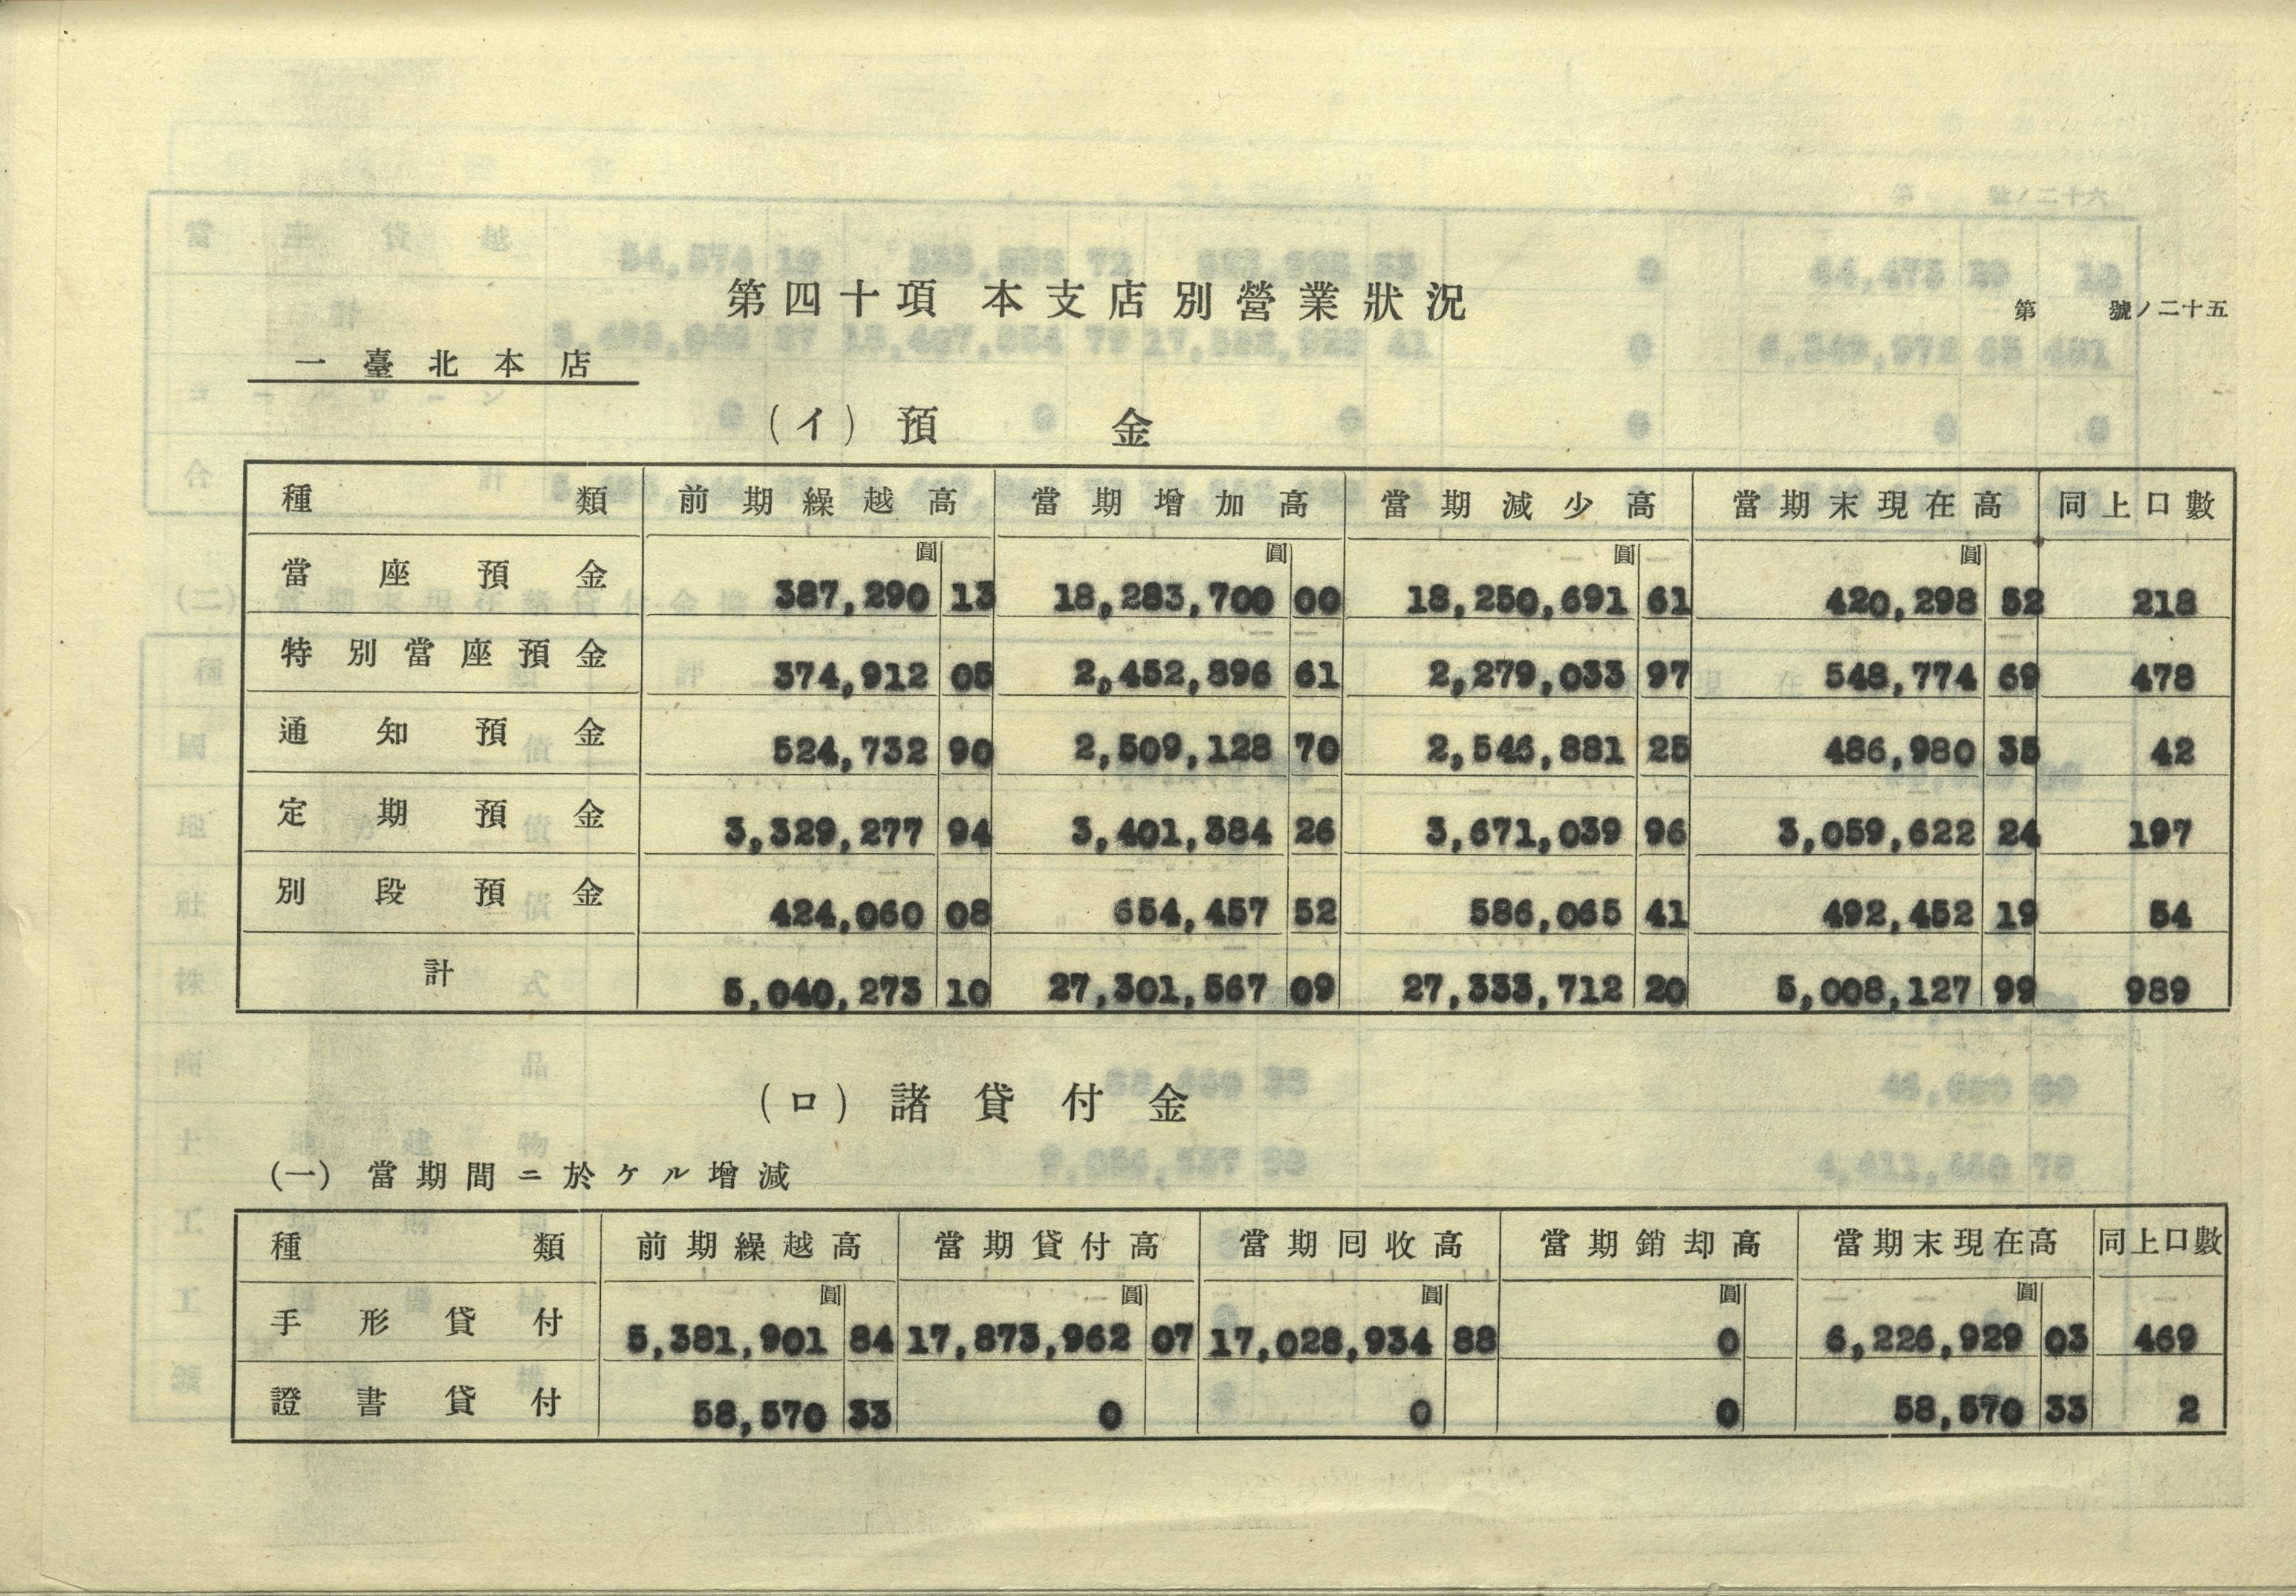 第四十項 本支店別營業狀況
第 號ノ二十五
一 臺北本店
(イ) 預金
種類 前期繰越高 當期增加高 當期減少高 當期末現在高 同上口數
圓 圓 圓 圓
當座預金 387,290 13 18,283,700 00 18,250,691 61 420,298 52 218
特別當座預金 374,912 05 2,452,896 61 2,279,033 97 548,774 69 478
通知預金 524,732 90 2,509,128 70 2,546,881 25 486,980 35 42
定期預金 3,329,277 94 3,401,384 26 3,671,039 96 3,059,622 24 197
別段預金 424,060 08 654,457 52 586,065 41 492,452 19 54
計 5,040,273 10 27,301,567 09 27,333,712 20 5,008,127 99 989
(ロ) 諸貸付金
(一) 當期間ニ於ケル增減
種類 前期繰越高 當期貸付高 當期回收高 當期銷却高 當期末現在高 同上口數
圓 圓 圓 圓 圓
手形貸付 5,381,901 84 17,873,962 07 17,028,934 88 0 6,226,929 03 469
證書貸付 58,570 33 0 0 0 58,570 33 2